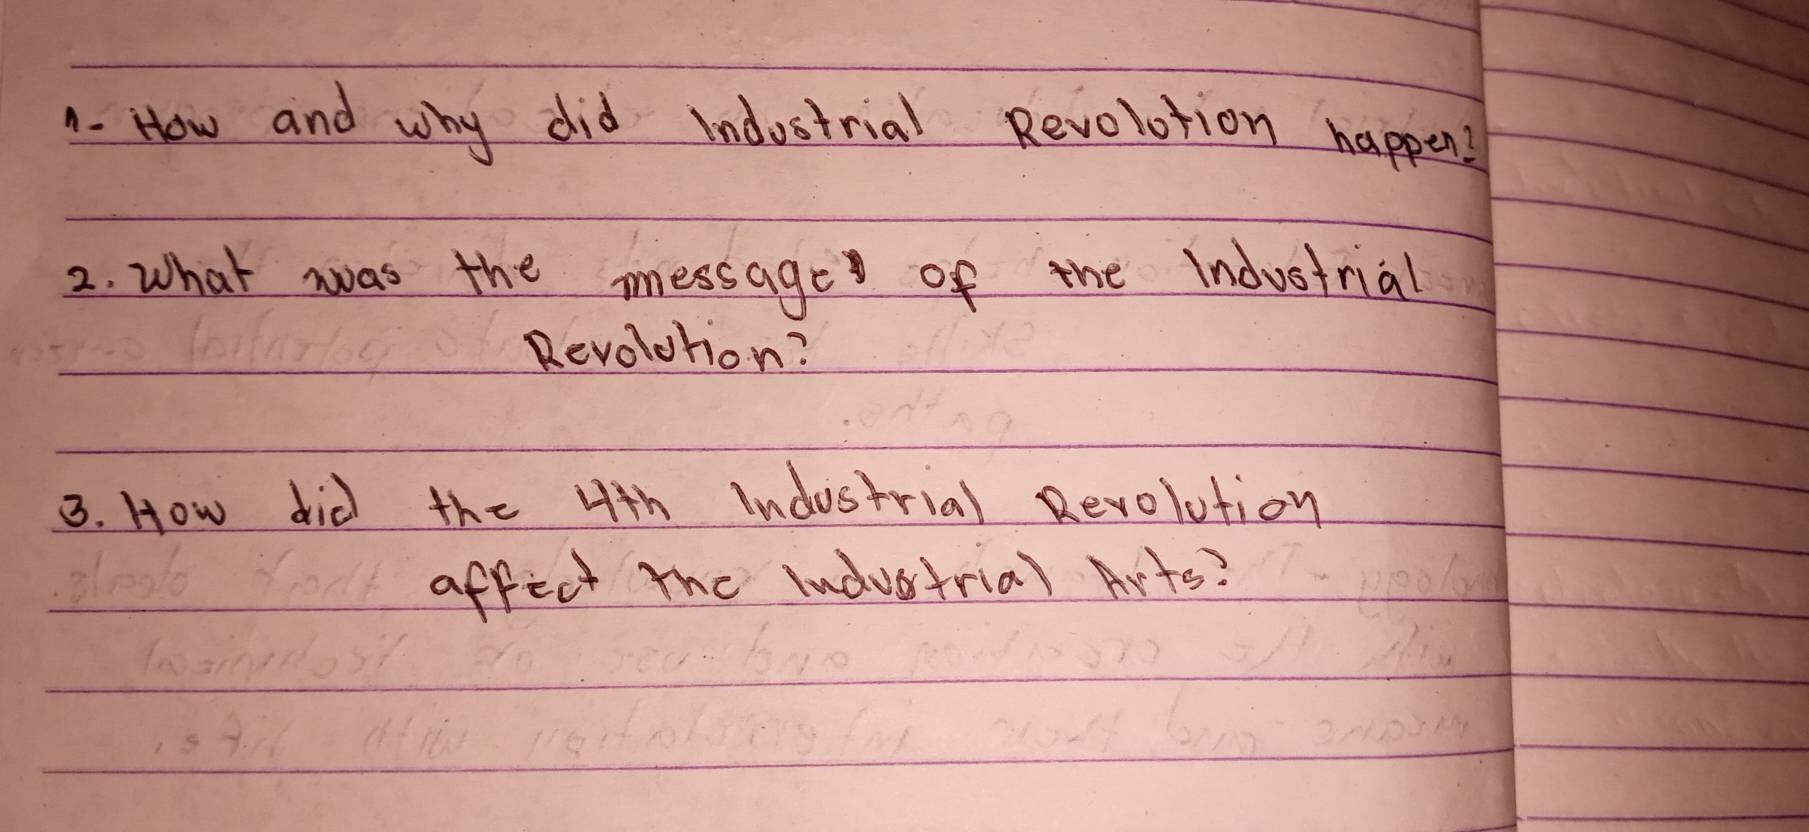 1- How and why did Industrial Revolution happen?
2. What was the message of the Industrial
Revolution?
3. How did the 4th Industrial Revolution
affect the Industrial Arts?